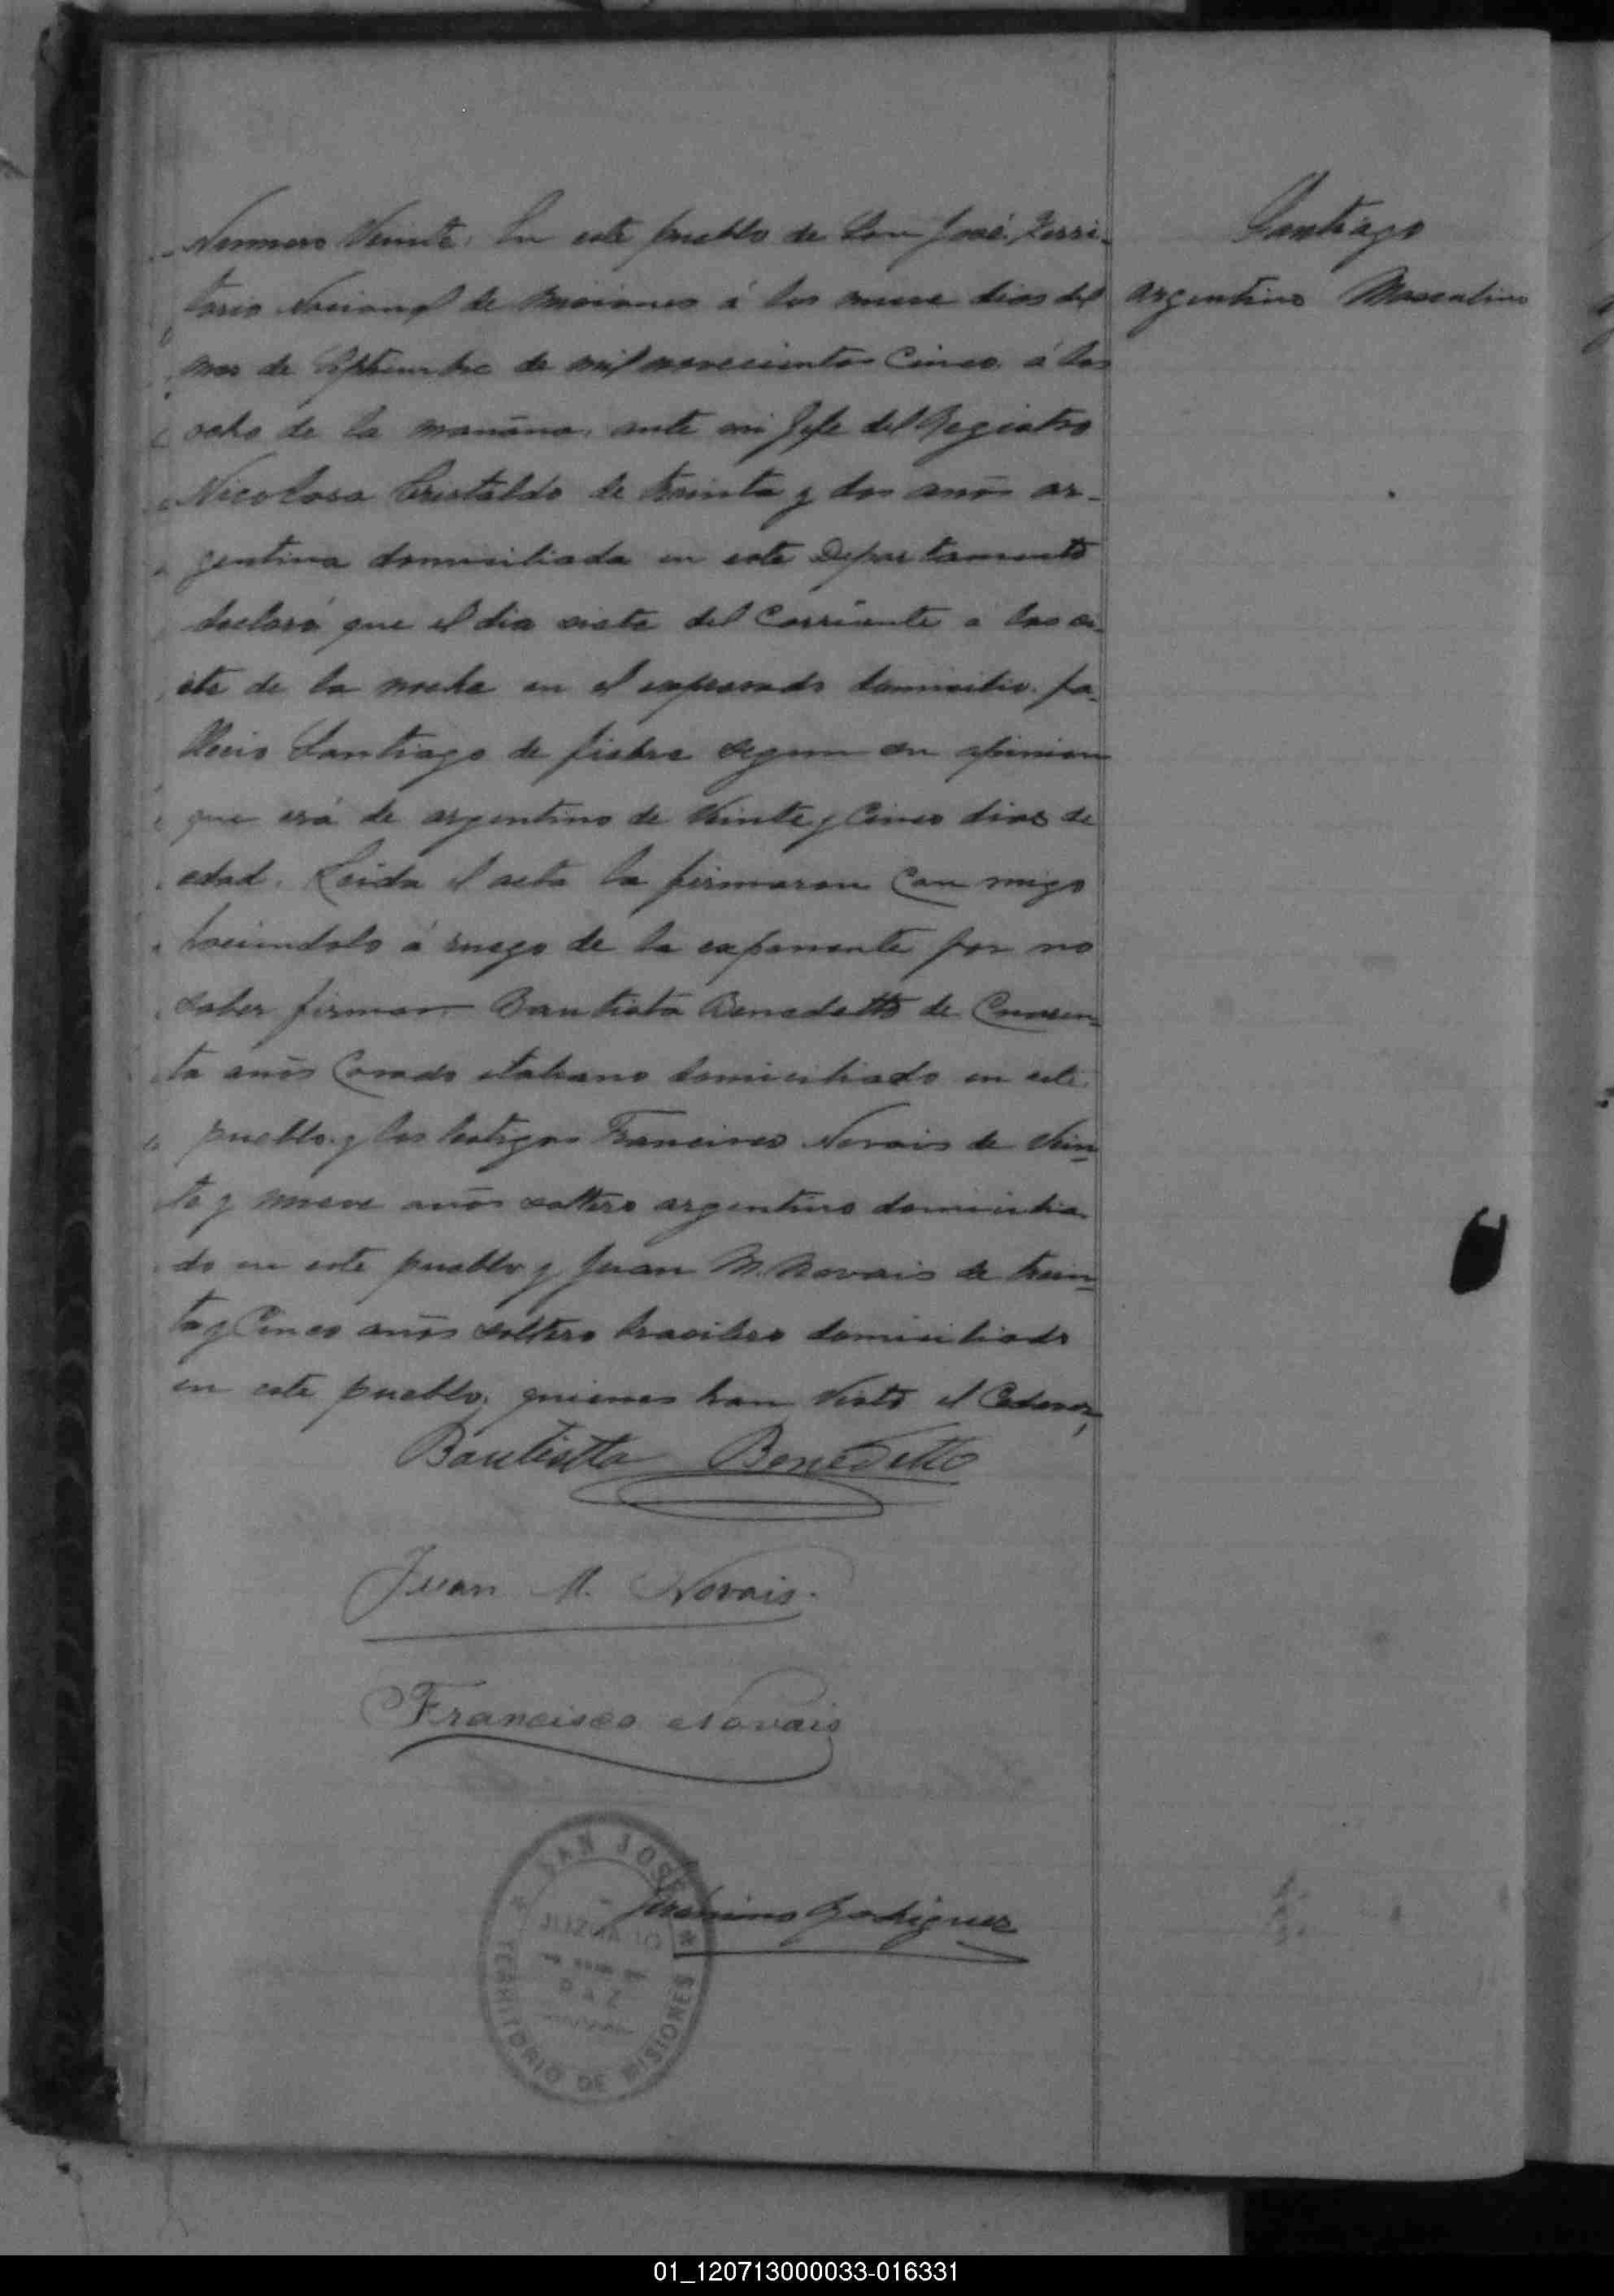 Santiago
argentino Masculino
Numero Veinte. En este pueblo de San José. Terri-
torio Nacional de Misiones á los nueve dias del
mes de Septiembre de mil novecientos Cinco á las
ocho de la mañana, ante mi Jefe del Registro
Nicolasa Cristaldo de treinta y dos anõs ar-
gentina domiciliada en este Departamento
declaró que el dia siete del Corriente a las si-
ete de la noche en el expresado domicilio fa-
llecio Santiago de fiebre segun su opinion
que erá de argentino de Veinte y Cinco dias de
edad. Leida el acta la firmaron Con migo
haciendolo á ruego de la exponente por no
saber firmar Bautista Benedetto de Cuaren-
ta anõs Casado italiano domiciliado en este
pueblo y los testigos Francisco Novais de Vein-
te y nueve anõs soltero argentino domicilia-
do en este pueblo y Juan M. Novais de trein-
ta y Cinco anõs soltero brasilero domiciliado
en este pueblo, quienes han Visto el Cadaver,
Bautistta Benedetto
Juan M. Novais.
Francisco Novais
SAN JOSÉ
JUZGADO
DE
PAZ
TERRITORIO DE MISIONES
Rodriguez
01_120713000033-016331